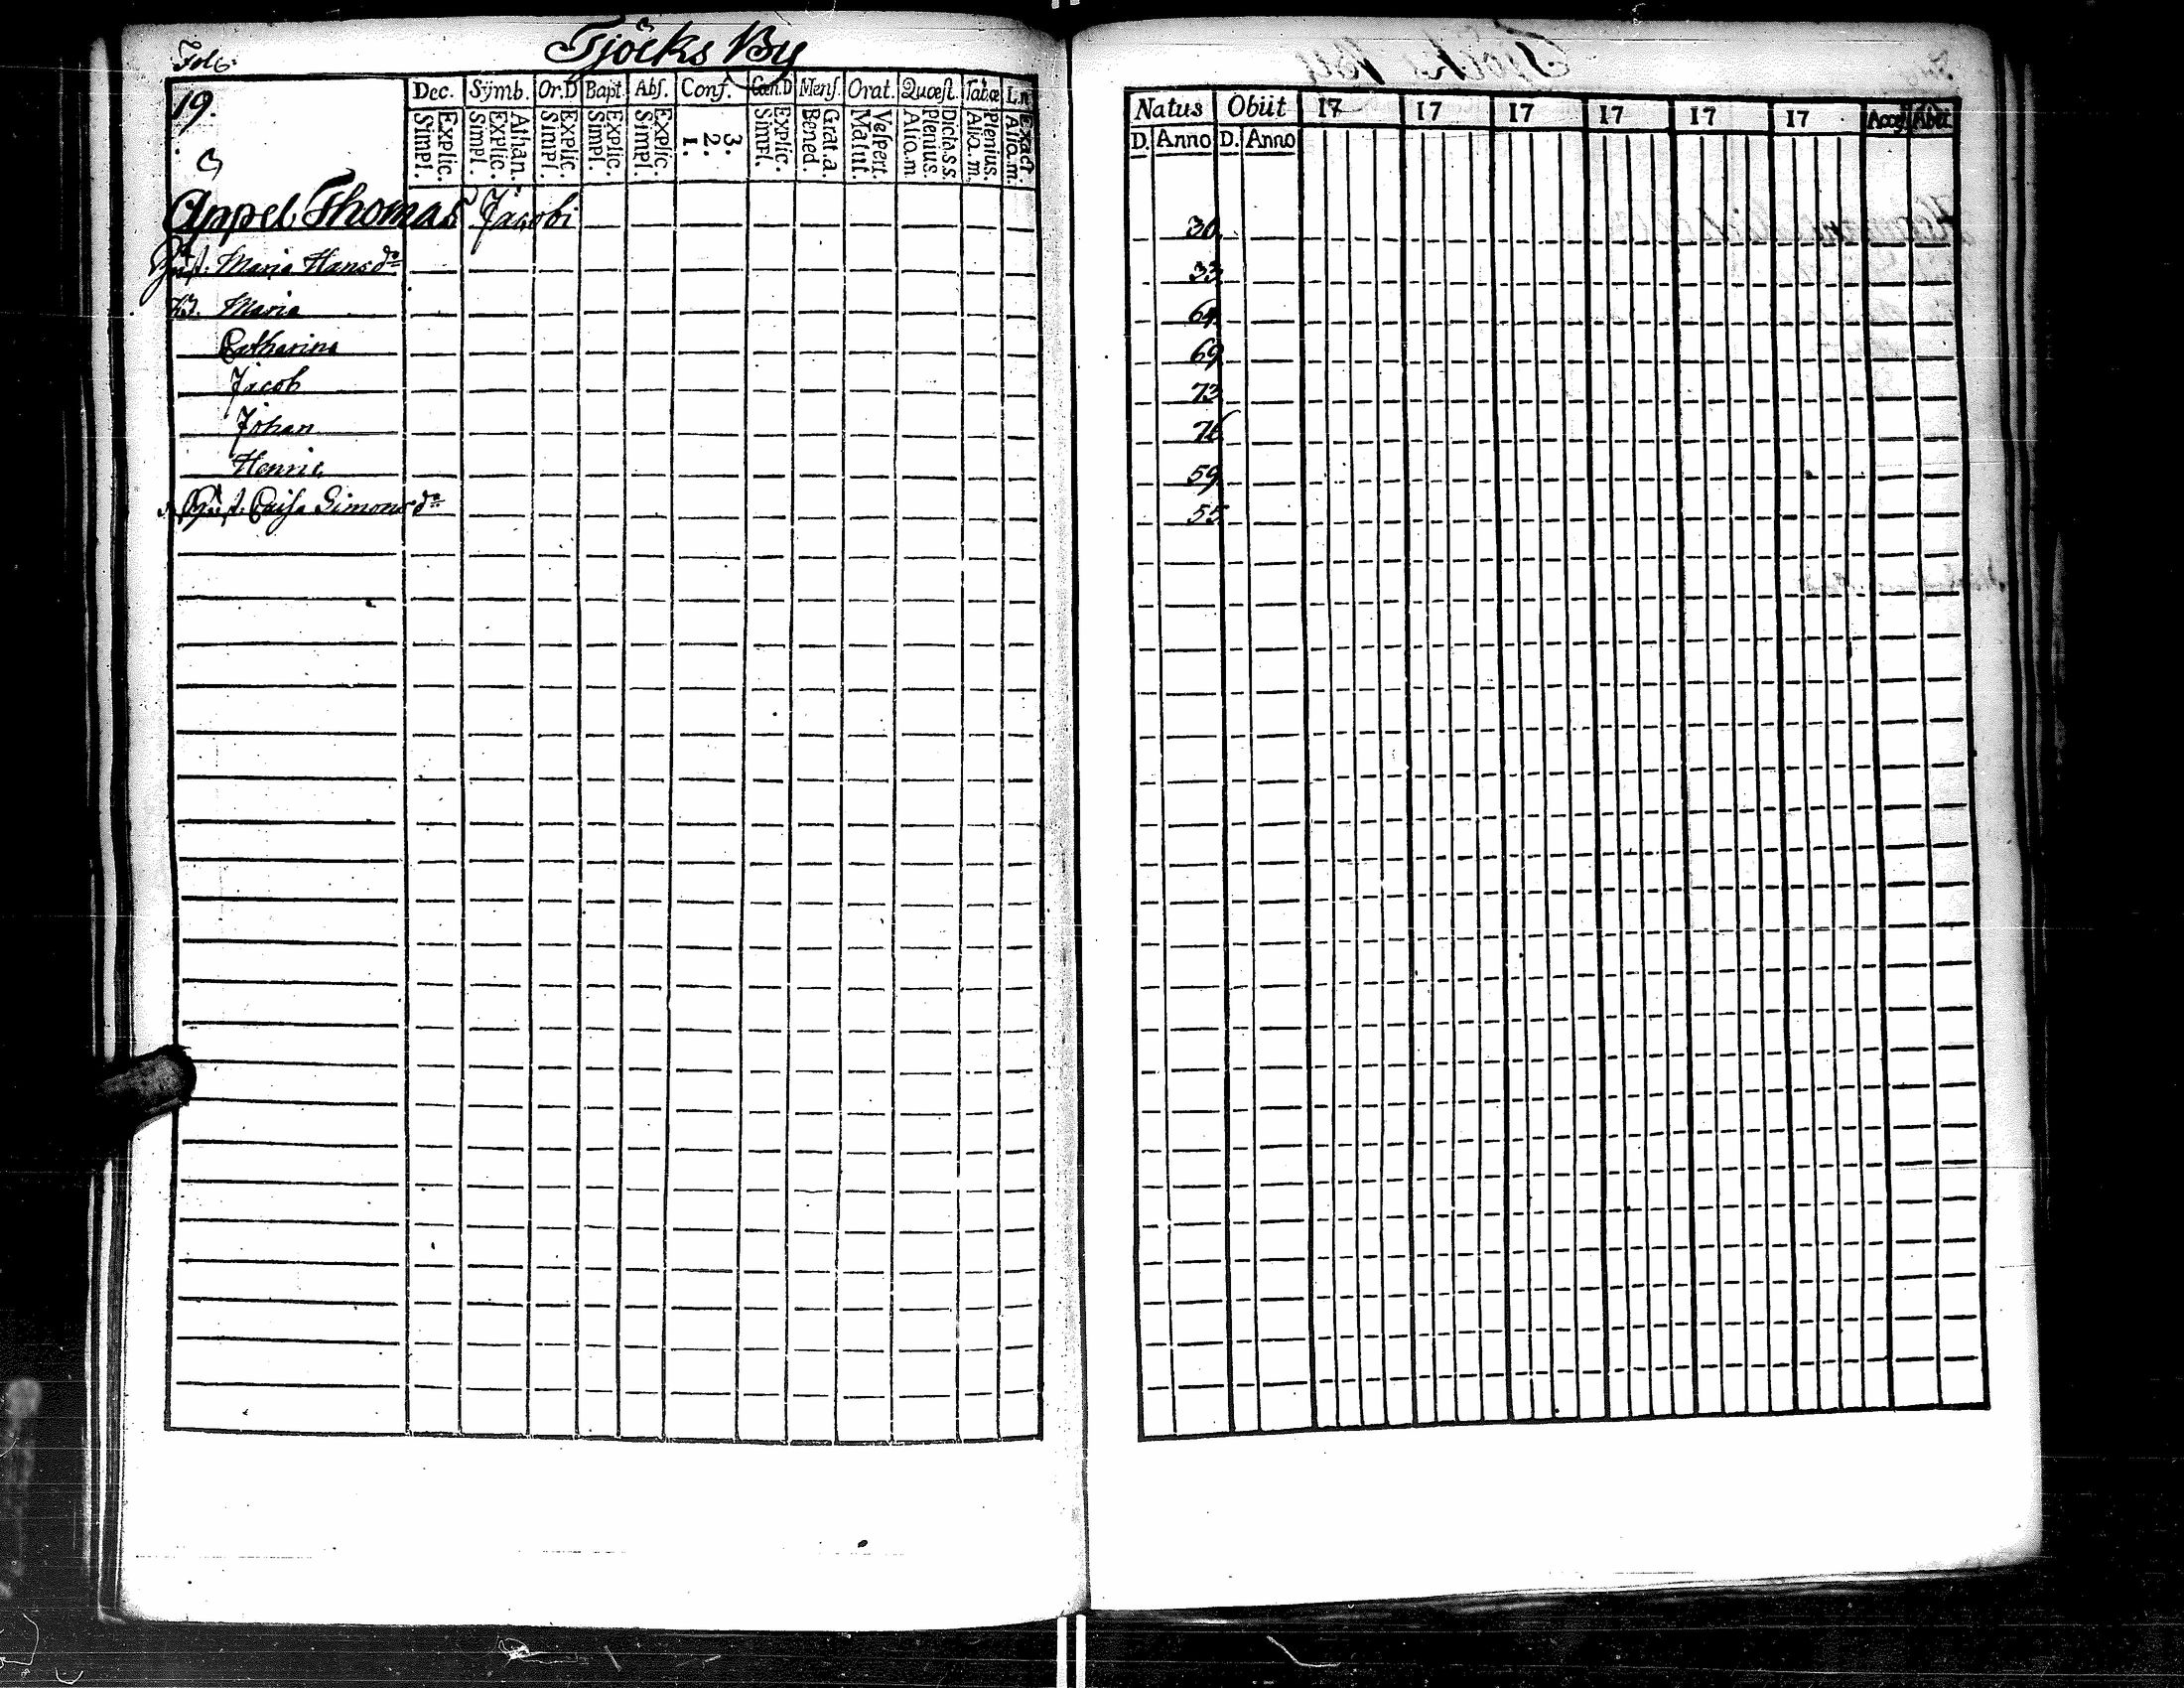 Tjöcks By
19.
Dec. Sÿmb. Or.D Bapt. Abſ. Conf. Cœn.D Menſ. Orat. Quœſt. Tabœ L.n
Simpl. Explic. Simpl. Explic. Athan. Simpl. Explic. Simpl. Explic. Simpl. Explic. 1. 2. 3. Simpl. Explic. Bened. Grat.a. Matut. Veſpert. Alio.m Plenius. Dicta.s.s. Alio.m. Plenius. Alio.m. Exact.
Appel Thomas Jacobi
Hust. Maria Hansdr
Maria
Catharina
Jacob
Johan
Henric
Hust. Caisa Simonsdr
Natus Obiit 17 17 17 17 17 17 Acceſ Abiit
D. Anno D. Anno
30
33
64
69
73
76
59
55